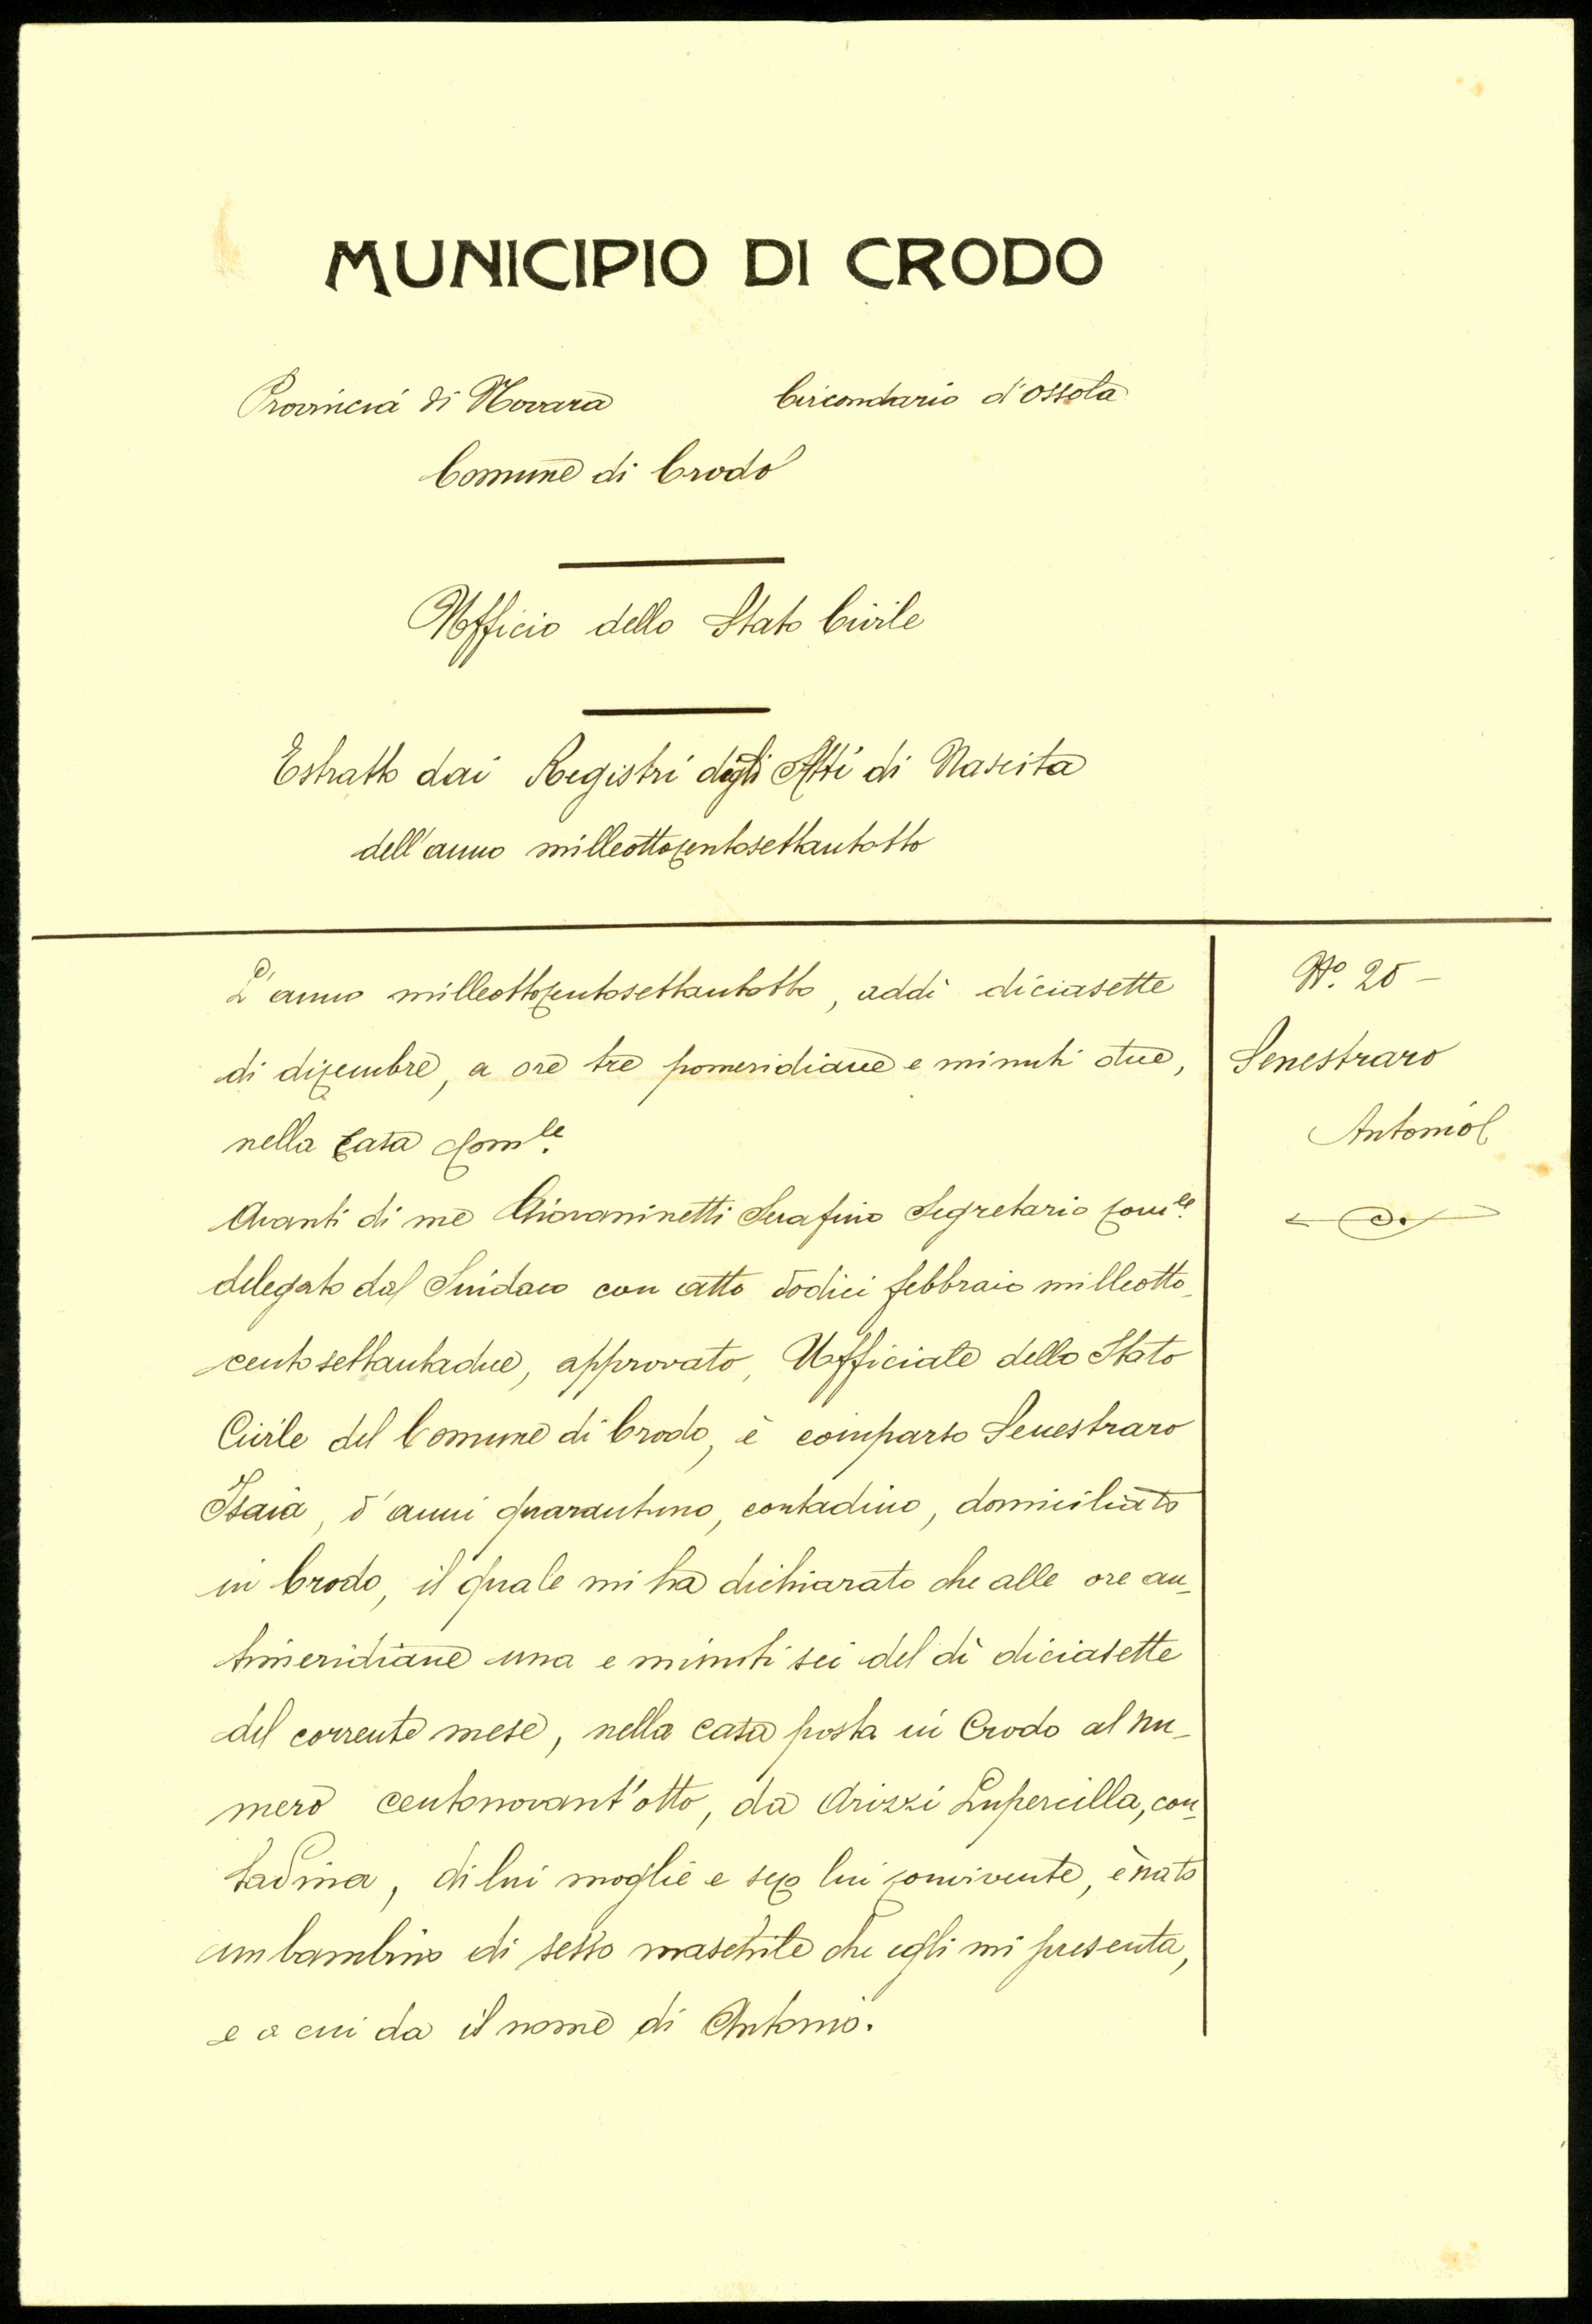 MUNICIPIO DI CRODO
Provincia di Novara Circondario d'Ossola
Comune di Crodo
Ufficio dello Stato Civile
Estratto dai Registri degli Atti di Nascita
dell'anno milleottocentosettantotto
L'anno milleottocentosettantotto, addì diciasette
di dicembre, a ore tre pomeridiane e minuti due,
nella Casa Comle.
Avanti di me Giovaninetti Serafino Segretario Comle.
delegato dal Sindaco con atto dodici febbraio milleotto-
centosettantadue, approvato, Ufficiale dello Stato
Civile del Comune di Crodo, è comparso Senestraro
Isaia, d'anni quarantuno, contadino, domiciliato
in Crodo, il quale mi ha dichiarato che alle ore an-
timeridiane una e minuti sei del dì diciasette
del corrente mese, nella casa posta in Crodo al nu-
mero centonovant'otto, da Arizzi Lupercilla, con-
tadina, di lui moglie e seco lui convivente, è nato
un bambino di sesso maschile che egli mi presenta,
e a cui da il nome di Antonio.
No. 25 -
Senestraro
Antonio